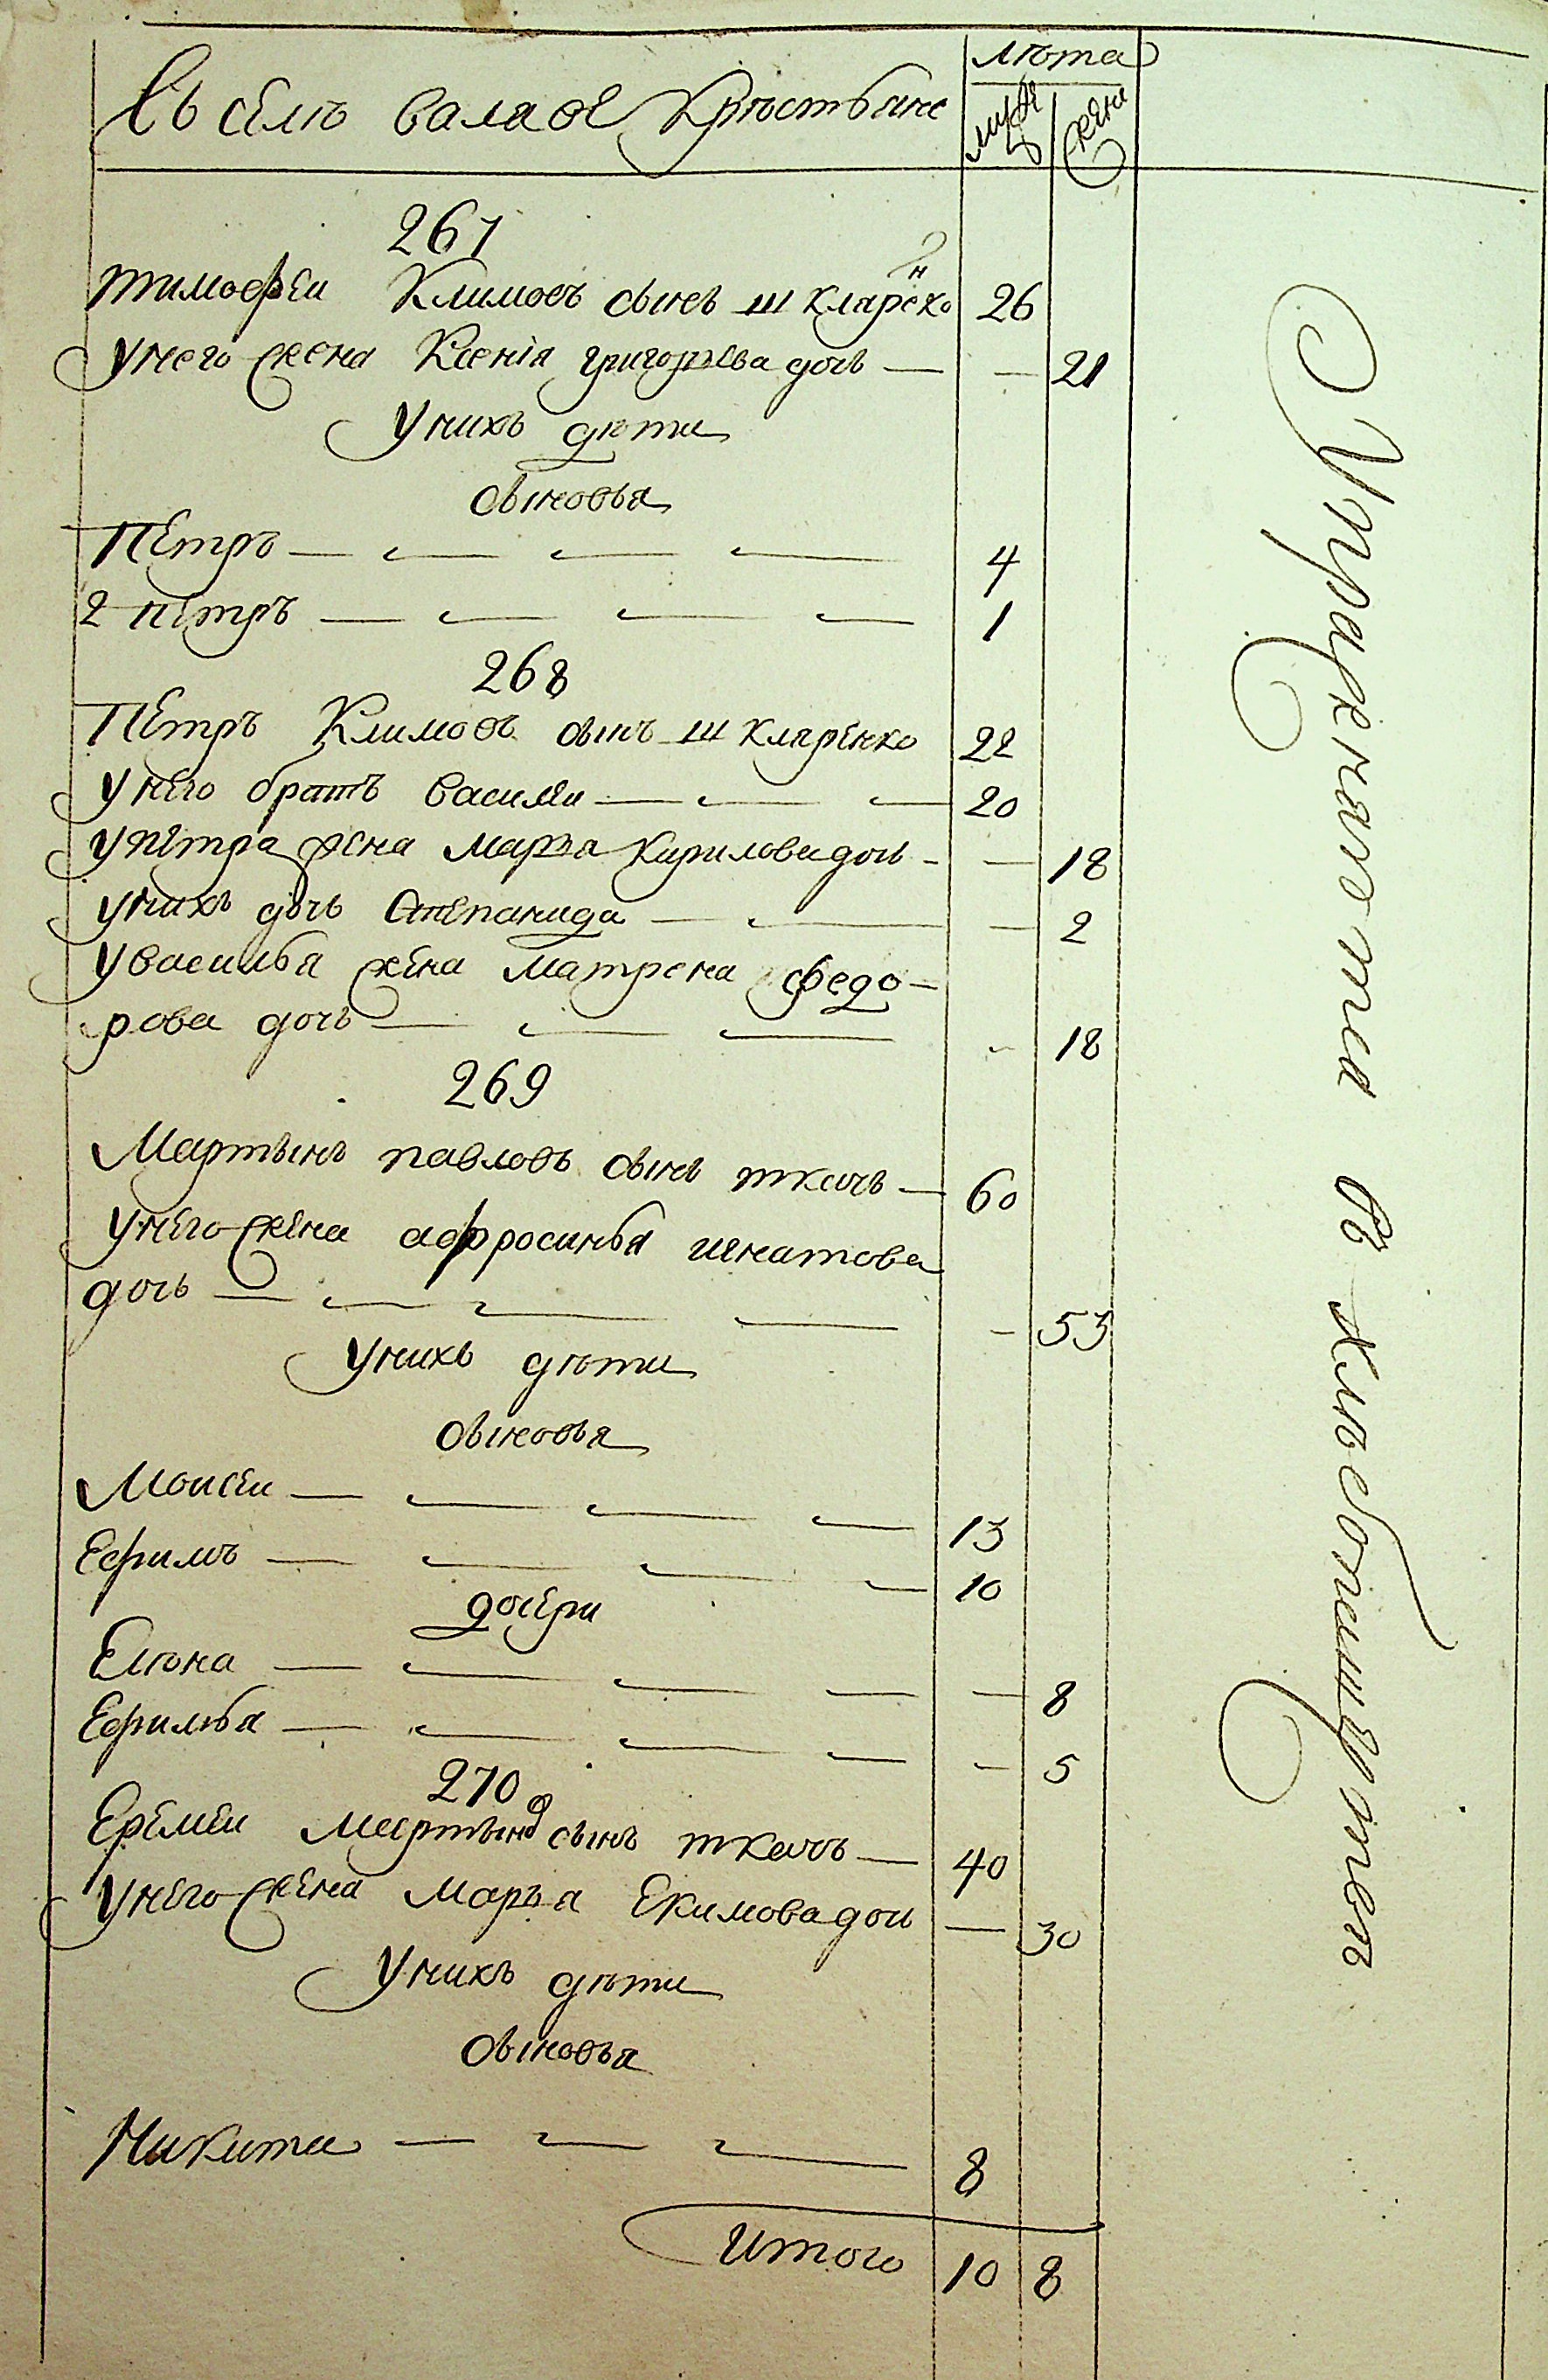 Въ селѣ валаве Крѣстьяне
лѣта
муже
жена
267
тимофеи Климовъ сынъ шкляренко 26
унего жена Ксенія григорьева дочь — — 21
унихъ дѣти
сыновья
Петръ — — — — 4
2 петръ — — — — 1
268
Петръ Климовъ сынъ шкляренко 22
унего братъ василеи — — — 20
упетра жена марья кирилова дочь - — 18
унихъ дочь степанида — — — 2
увасилья жена матрена федо-
рова дочь — — — - 18
269
Мартынъ павловъ сынъ ткачь — 60
унего жена афросинья игнатова
дочь — — — — - 53
унихъ дѣти
сыновья
Моисеи — — — — 13
Ефимъ — — — — 10
дочери
Елѣна — — — — — 8
Ефимья — — — — - 5
270
Еремеи мартыновъ сынъ ткачь — 40
унего жена марья Екимова дочь — 30
унихъ дѣти
сыновья
Никита — — — 8
итого 10 8
Упражняются въ хлѣбопашествѣ